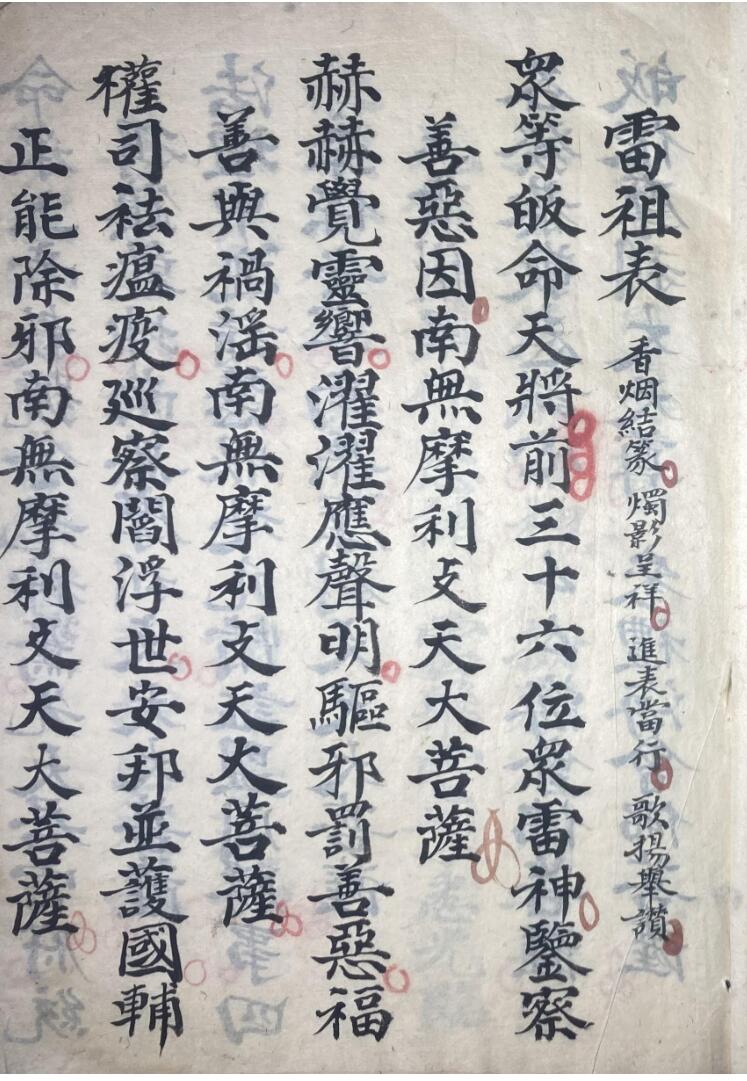 雷祖表 香烟結篆 燭影呈祥 進表當行 歌揚舉讚
眾等皈命天將前三十六位眾雷神鑒察
善惡因南無摩利支天大菩薩
赫赫覺靈響濯濯應聲明驅邪罰善惡福
善與禍滛南無摩利支天大菩薩
權司祛瘟疫巡察閻浮世安邦並護國輔
正能除邪南無摩利支天大菩薩